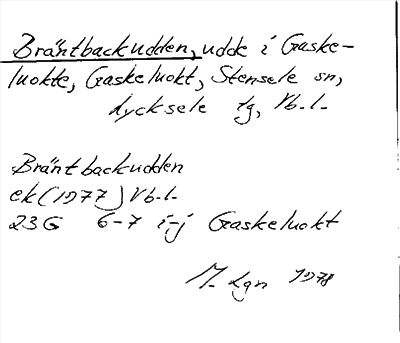 Bräntbackudden, udde i Gaske-
luokte, Gaskeluokt, Stensele sn,
Lycksele tg, Vb.l.
Bräntbackudden
ek (1977) Vb.l.
23G 6-7 i-j Gaskeluokt
M. Lgn 1978